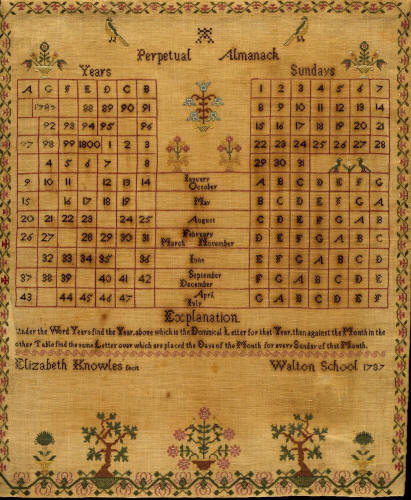 Perpetual Almanack
Years Sundays
A G F E D C B 1 2 3 4 5 6 7
1787 88 89 90 91 8 9 10 11 12 13 14
92 93 94 95 96 15 16 17 18 19 20 21
97 98 99 1800 1 2 3 22 23 24 25 26 27 28
4 5 6 7 8 29 30 31
9 10 11 12 13 14 January October A B C D E F G
15 16 17 18 19 May B C D E F G A
20 21 22 23 24 25 August C D E F G A B
26 27 28 29 30 31 February March November D E F G A B C
32 33 34 35 36 Iune E F G A B C D
37 38 39 40 41 42 September December F G A B C D E
43 44 45 46 47 April Iuly G A B C D E F
Explanation
Under the Word Years find the Year, above which is the Dominical Letter for that Year, then against the Month in the
other Table find the same Letter over which are placed the Days of the Month for every Sunday of that Month.
Elizabeth Knowles fecit Walton School 1787